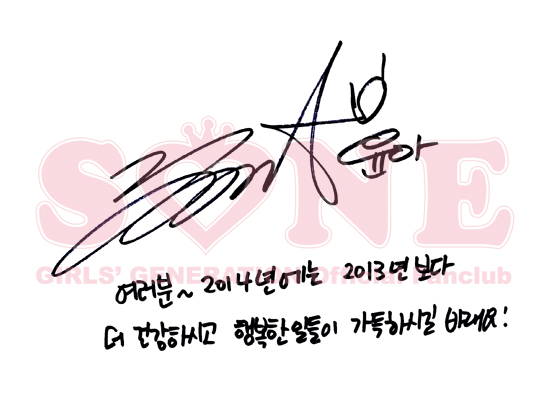 윤아
SONE
GIRLS' GENERATION Official Fanclub
여러분~ 2014년에는 2013년보다
더 건강하시고 행복한일들이 가득하시길 바래요!